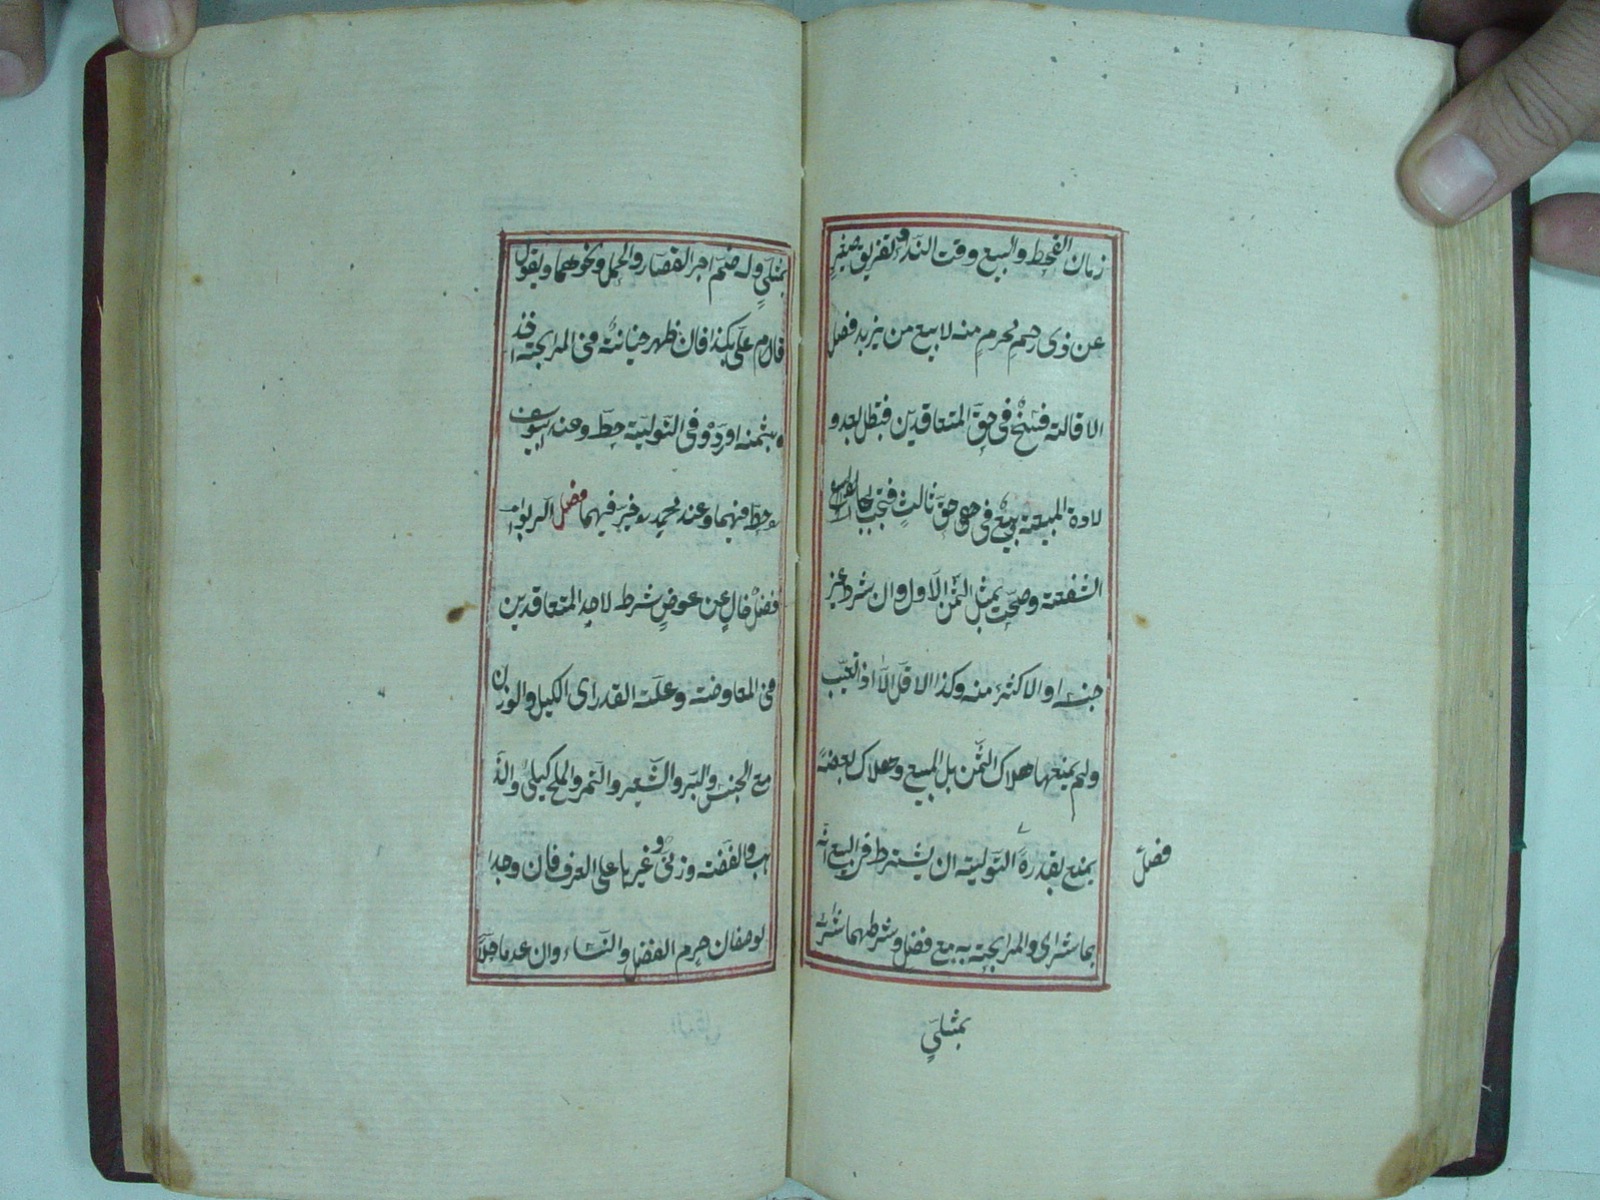 زمان القحط والبيع وقت النداء وتفريق صغير
عن ذى رحم محرم منه لا بيع من يزيد فصل
الاقالة فسخ فى حق المتعاقدين فتبطل بعد و
لادة المبيعة وبيع فى حق ثالث فتجب بها
الشفعة وصحت بمثل الثمن الاول وان شرط غير
جنسه او الاكثر منه وكذا الاقل الا اذا تعيب
ولم يمنعها هلاك الثمن بل المبيع وهلاك بعضه
يمنع بقدره التولية ان يشترط فى البيع انه
بما شرى والمرابحة به مع فضل وشرطهما شراؤه
فصل
بمثلي
بمثلي وله ضم اجر القصار والحمل ونحوهما ويقول
قام على بكذا فان ظهر خيانته فى المرابحة اخذ
بثمنه او رده وفى التولية حط وعند ابيوسف
حط فيهما وعند محمد خير فيهما فصل الربوا
فضل خال عن عوض شرط لاحد المتعاقدين
فى المعاوضة وعلته القدر اى الكيل والوزن
مع الجنس والبر والشعير والتمر والملح كيلى والذ
هب والفضة وزنى وغيرها على العرف فان وجدا
لوصفان حرم الفضل والنساء وان عدما حلا